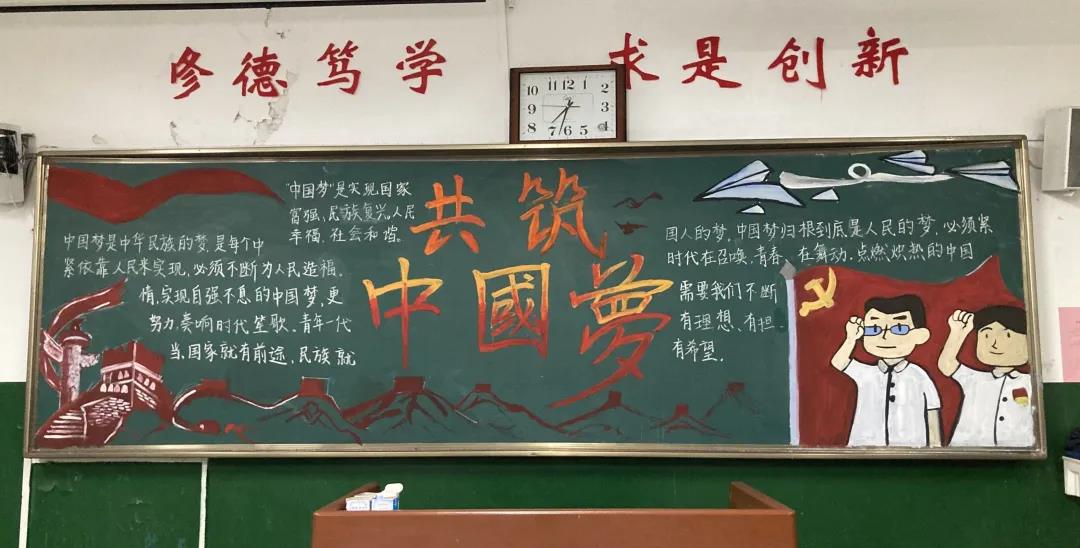 修德笃学
求是创新
10 11 12 1 2
9 3
8 7 6 5 4
共筑
中國夢
"中国梦"是实现国家
富强、民族复兴、人民
幸福、社会和谐。
中国梦是中华民族的梦,是每个中
紧依靠人民来实现,必须不断为人民造福。
情,实现自强不息的中国梦,更
努力,奏响时代笙歌,青年一代
当,国家就有前途,民族就
国人的梦,中国梦归根到底是人民的梦,必须紧
时代在召唤,青春、在舞动,点燃炽热的中国
需要我们不断
有理想、有担
有希望。